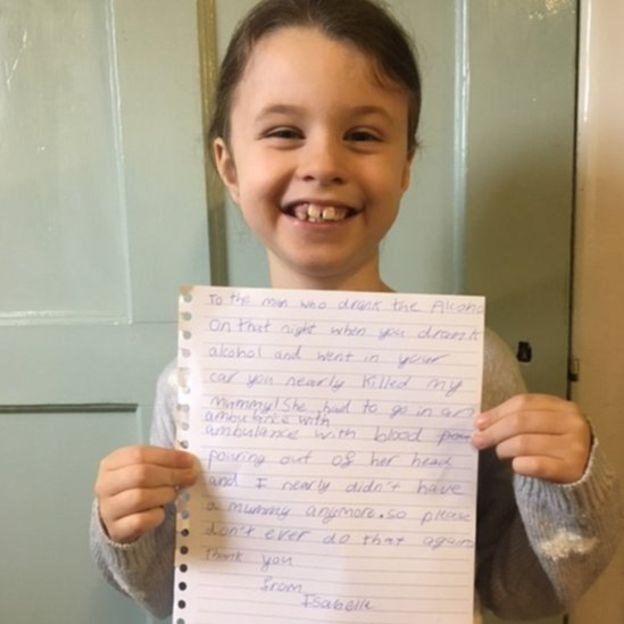 To the man who drank the Alcoho
On that night when you drank
alcohol and went in your
car you nearly killed my
mummy! She had to go in an
ambulance with
ambulance with blood
pouring out of her head
and I nearly didn't have
a mummy anymore. so please
don't ever do that again
Thank you
from
Isabelle